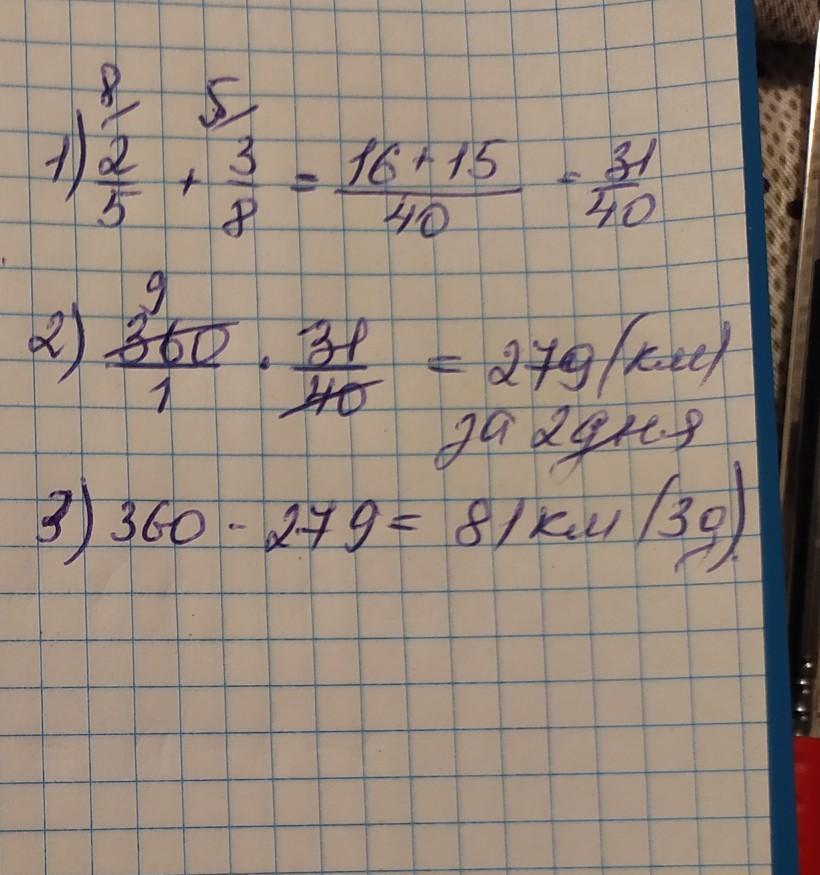 8 5
1) 2/5 + 3/8 = 16+15/40 = 31/40
9
2) 360/1 · 31/40 = 279 (км)
за 2 дня
3) 360 - 279 = 81 км (3 д).